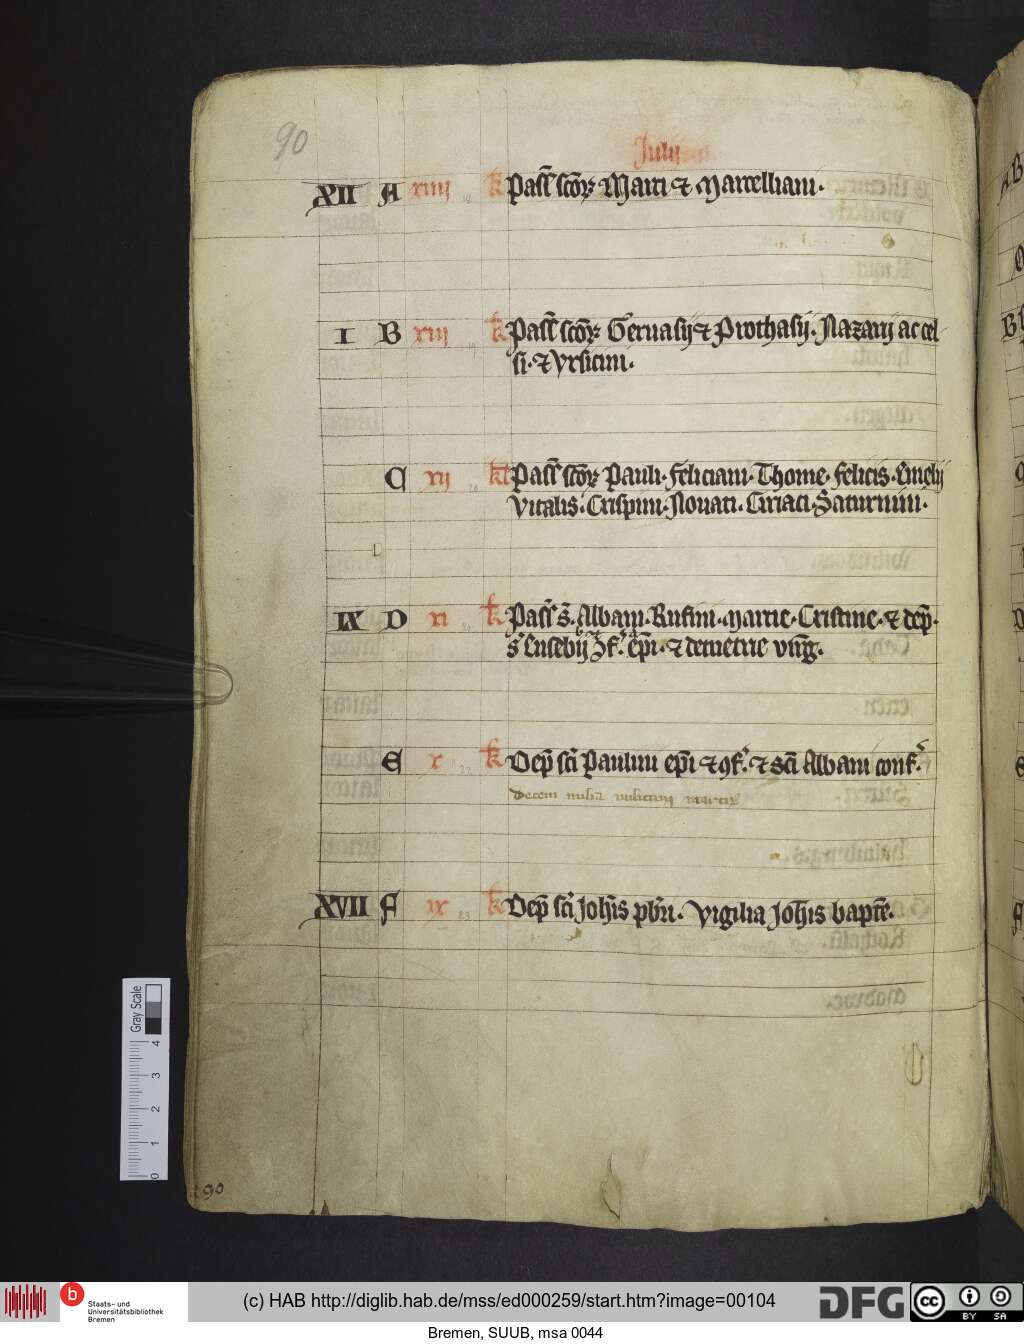 90
Julii
XII A xiiii k Pass̄ sc̄oꝝ Marci ⁊ Marcelliani.
I B xiii k Pass̄ sc̄oꝝ Geruasij ⁊ Prothasij. Nazarij ac cel
si. ⁊ Vrsicini.
C xij kl Pass̄ sc̄oꝝ Pauli. Feliciani. Thome. Felicis. Emelij
Vitalis. Crispini. Nouati. Ciriaci. Saturnini.
IX D xi k Pass̄ s̄. Albani. Rufini. marcie. Cristine. ⁊ dep̄.
s̄ Eusebij ep̄i. ⁊ demetrie virḡ.
E x k Dep̄ sc̄i Paulini ep̄i ⁊ ꝯf̄. ⁊ sc̄i Albani conf̄.
Decem milia militum martir̄
XVII F ix k Dep̄ sc̄i Joh̄is pb̄ri. Vigilia Joh̄is bapt̄e.
90
Gray Scale
4
3
2
1
0
Staats- und
Universitätsbibliothek
Bremen
(c) HAB http://diglib.hab.de/mss/ed000259/start.htm?image=00104
DFG
cc BY SA
Bremen, SUUB, msa 0044